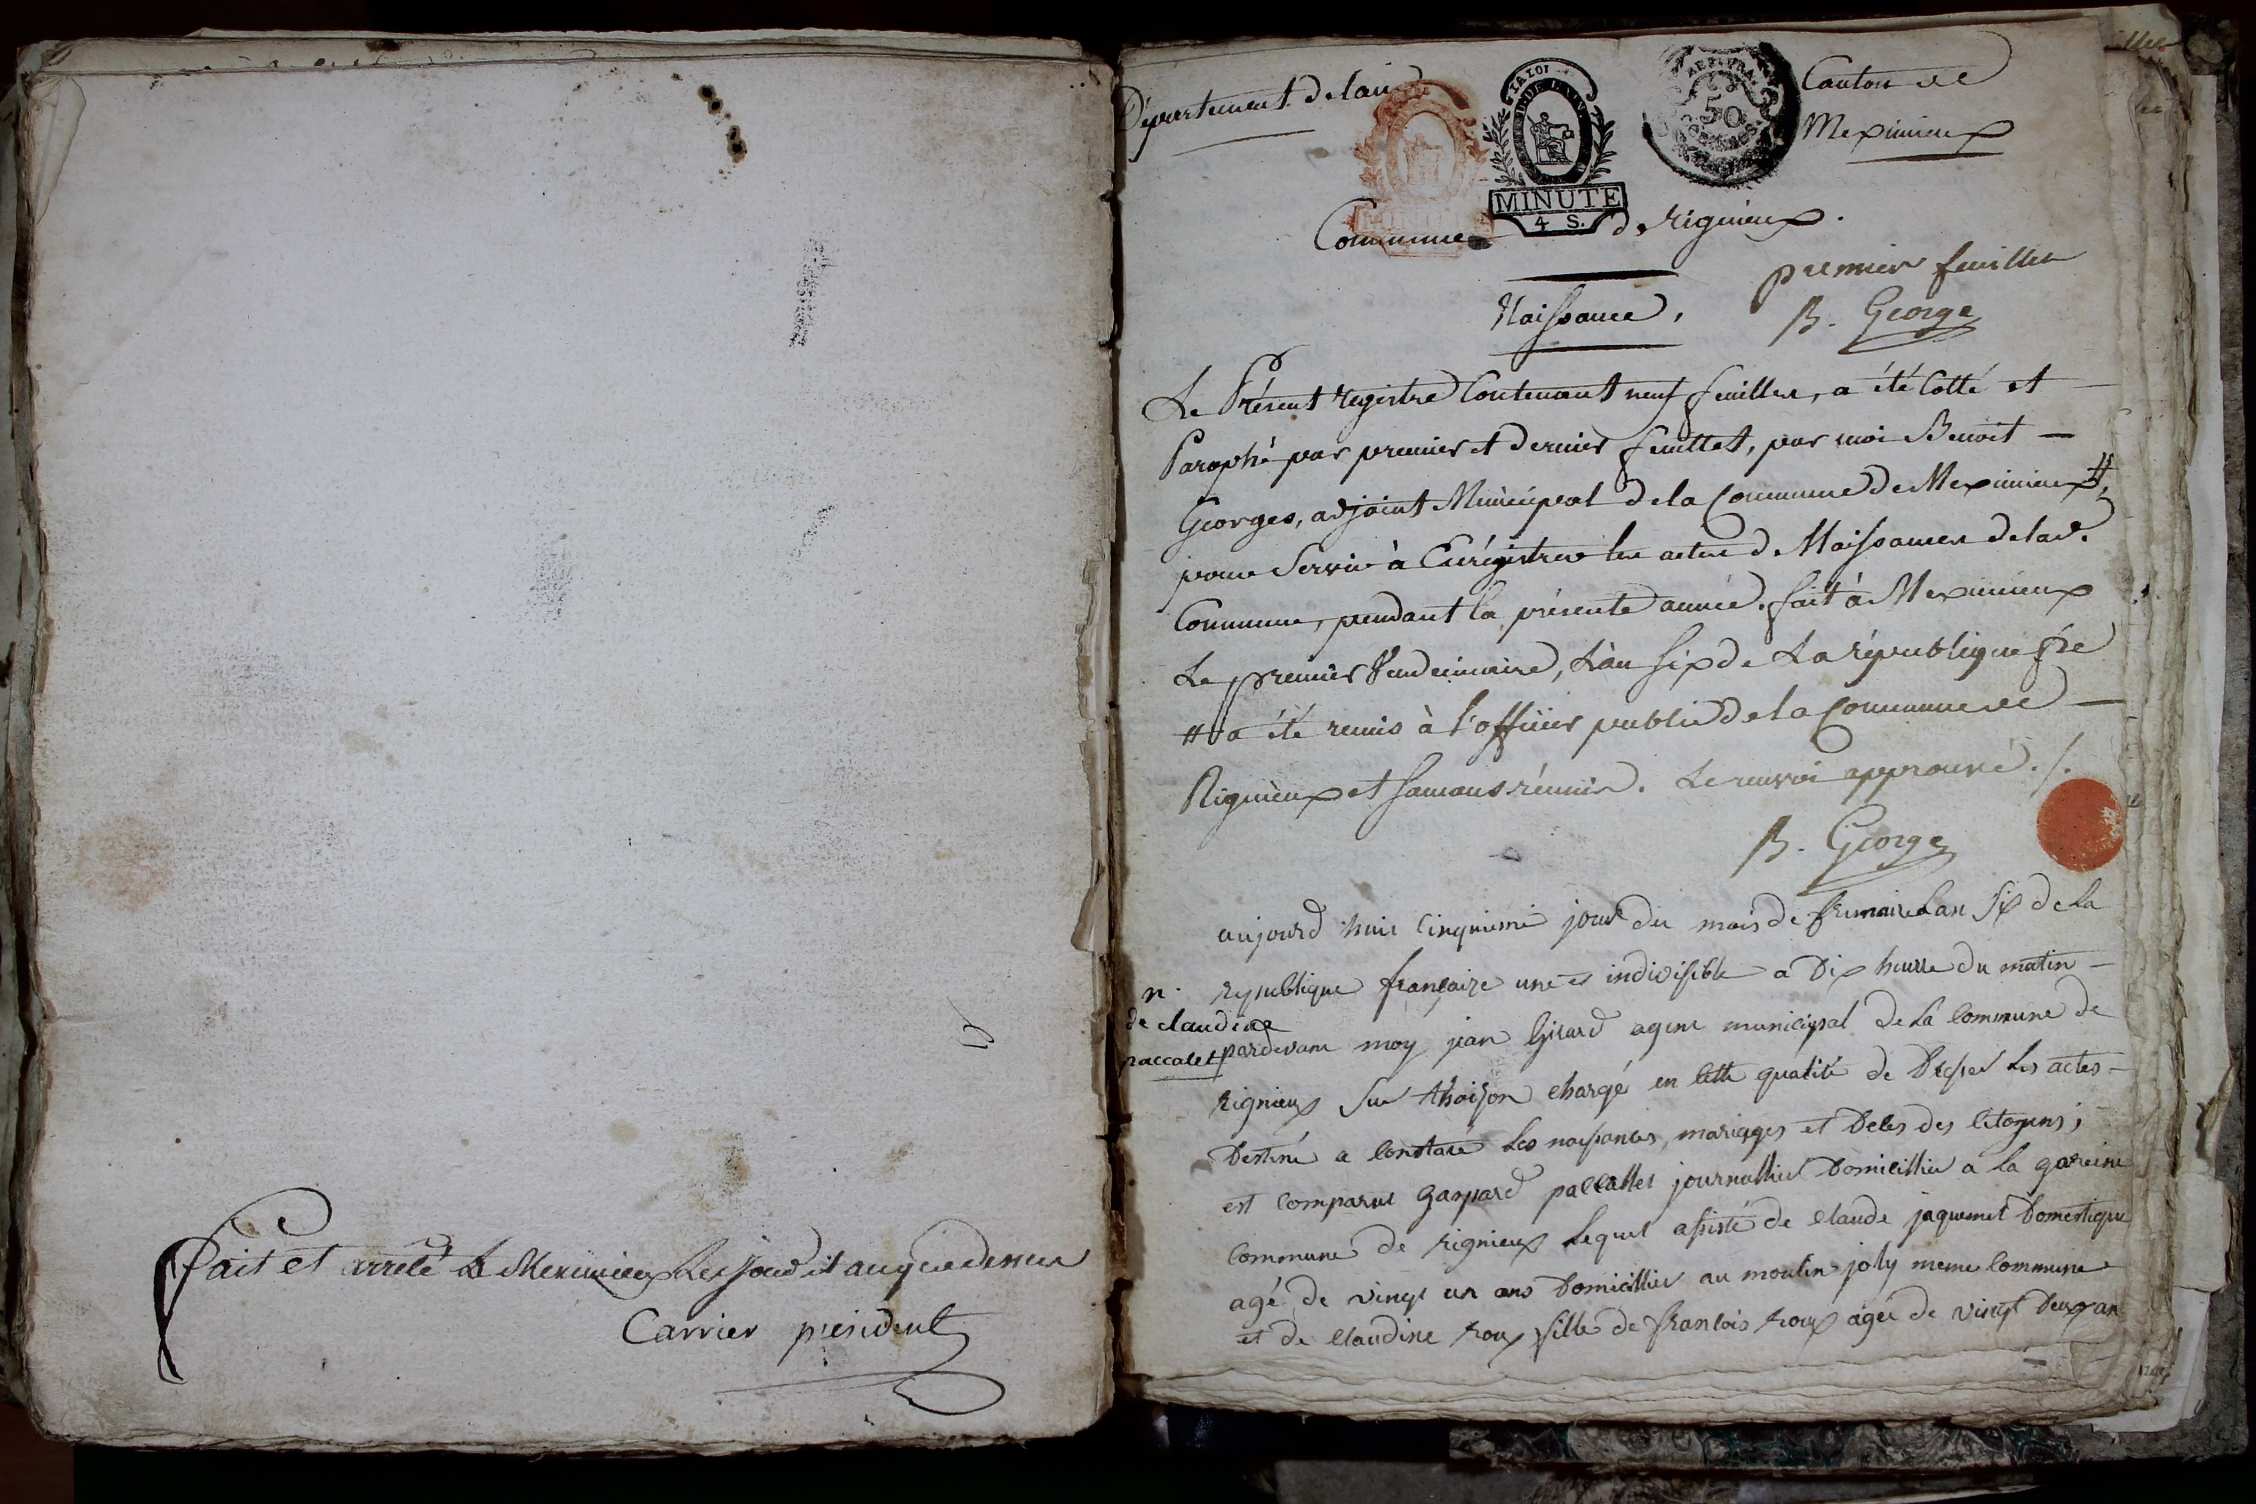 Fait et arrêté à Meximieux les jour et an que dessus
Carrier président
Département de lain
LA LOI
REP. FRA.
50
CENTIMES
Canton de
Meximieux
MINUTE
4 S.
Commune de Rignieux.
premier feuillet
Naissance,
B. George
Le Présent registre Contenant neuf feuilles, a été Cotté et
Paraphé par premier et dernier feuillet, par moi Benoit
Georges, adjoint Municipal de la Commune de Meximieux #,
pour Servir à Enrégistrer les actes de Naissances de lad.
Commune, pendant la présente année. fait à Meximieux
Le premier Vendemiaire, L'an six de La république fse
# a été remis à l'officier public de la Commune de
Rignieux et Samans réunis. Le renvoi approuvé ./.
B. George
aujourd huit Cinquieme jour du mois de frimaire Lan six de La
n.
de claudine
paccalet
republique françaize une et indivisible a Dix heurre du matin
pardevant moy jean Girard agent municipal de La Commune de
rignieux Sur Choizon chargé en Cette qualité de Dresser Les actes
Destiné a Constaté Les naissances, mariages et Deces des Citoyens;
est Comparut gaspard paccallet journallier Domicillier a La garenne
Commune de rignieux Lequel assisté de Claude jaquemet Domestique
agé de vingt un ans Domicillier au moulin joly meme Commune
et de Claudine roux fille de francois roux agée de vingt Deux an